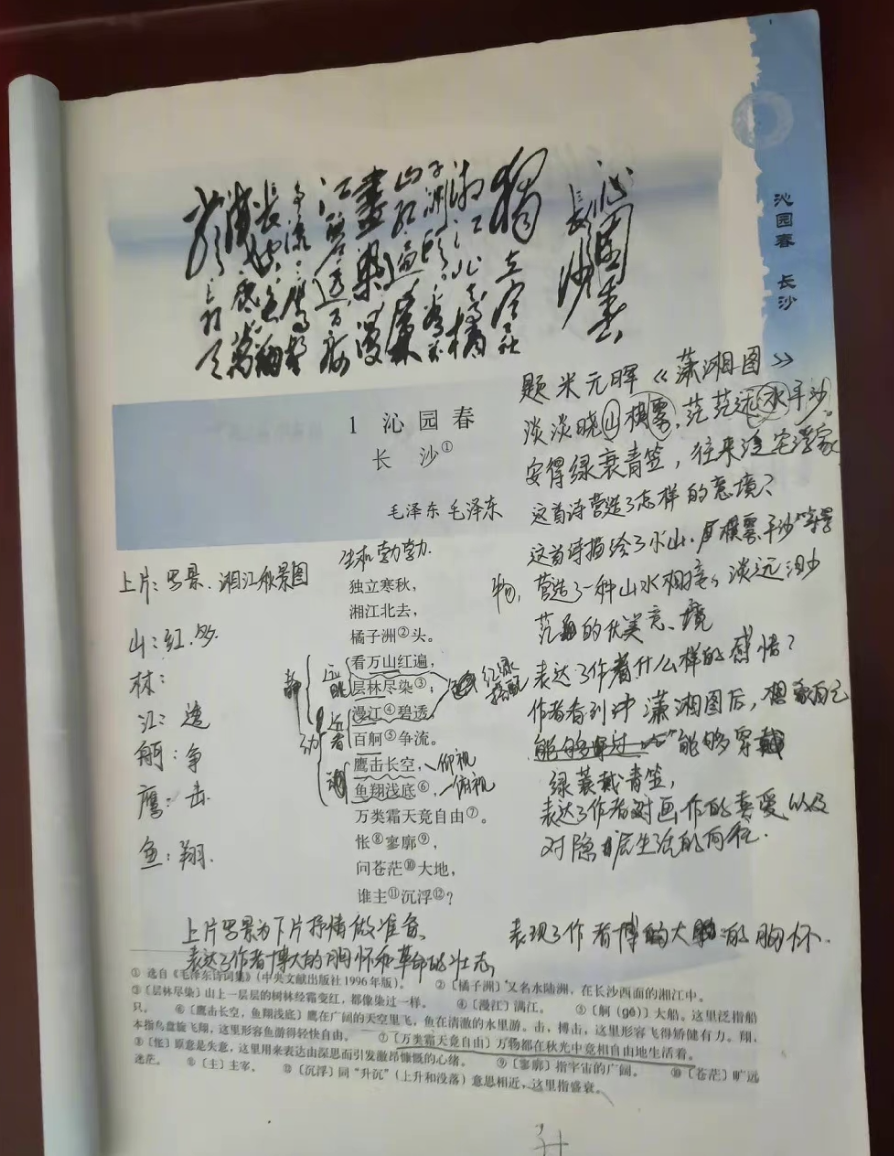 沁园春 长沙
沁园春
长沙
独立寒秋
湘江北去橘
子洲头看万
山红遍层林
尽染漫
江碧透百舸
争流鹰击
长空鱼翔
浅底万
类霜天
1 沁园春
长 沙①
毛泽东 毛泽东
题米元晖《潇湘图》
淡淡晓山横雾,茫茫远水平沙。
安得绿蓑青笠,往来泛宅浮家
这首诗营造了怎样的意境?
这首诗描绘了水山、横雾、平沙等景
物,营造了一种山水相接、淡远渺
茫的优美意境
表达了作者什么样的感情?
作者看到潇湘图后,想象自己
能够穿戴
绿蓑戴青笠,
表达了作者对画作的喜爱以及
对隐居生活的向往.
生机勃勃.
上片:写景.湘江秋景图
山:红.多
林:
江:透
舸:争
鹰:击.
鱼:翔.
静
动
远眺
近看
红绿搭配
仰视
俯视
独立寒秋,
湘江北去,
橘子洲②头。
看万山红遍,
层林尽染③;
漫江④碧透,
百舸⑤争流。
鹰击长空,
鱼翔浅底⑥,
万类霜天竞自由⑦。
怅⑧寥廓⑨,
问苍茫⑩大地,
谁主⑪沉浮⑫?
上片写景为下片抒情做准备.
表达了作者博大的胸怀和革命的壮志
表现了作者博大的胸怀.
① 选自《毛泽东诗词集》(中央文献出版社1996年版)。 ②〔橘子洲〕又名水陆洲,在长沙西面的湘江中。
③〔层林尽染〕山上一层层的树林经霜变红,都像染过一样。 ④〔漫江〕满江。 ⑤〔舸(gě)〕大船。这里泛指船
只。 ⑥〔鹰击长空,鱼翔浅底〕鹰在广阔的天空里飞,鱼在清澈的水里游。击,搏击,这里形容飞得矫健有力。翔,
本指鸟盘旋飞翔,这里形容鱼游得轻快自由。 ⑦〔万类霜天竞自由〕万物都在秋光中竞相自由地生活着。
⑧〔怅〕原意是失意,这里用来表达由深思而引发激昂慷慨的心绪。 ⑨〔寥廓〕指宇宙的广阔。 ⑩〔苍茫〕旷远
迷茫。 ⑪〔主〕主宰。 ⑫〔沉浮〕同“升沉”(上升和没落)意思相近,这里指盛衰。